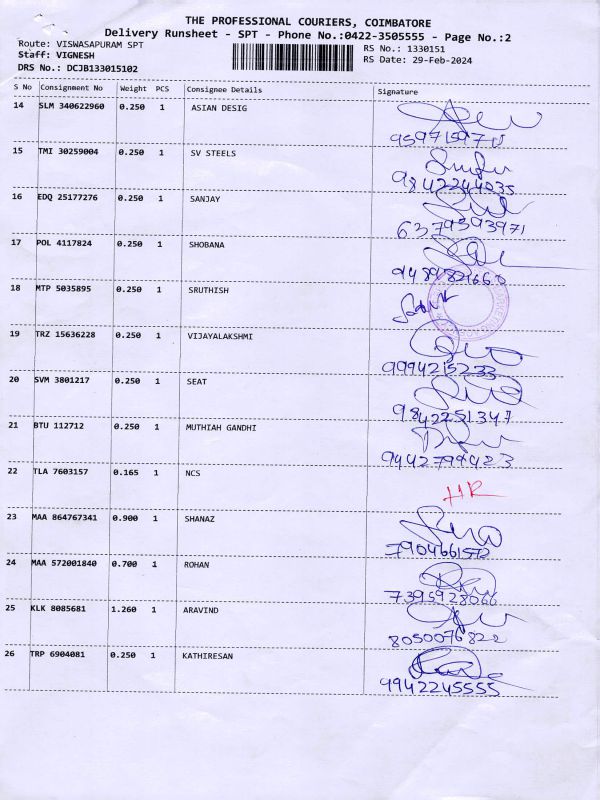 THE PROFESSIONAL COURIERS, COIMBATORE
Delivery Runsheet - SPT - Phone No.:0422-3505555 - Page No.:2
Route: VISWASAPURAM SPT
RS No.: 1330151
Staff: VIGNESH
RS Date: 29-Feb-2024
DRS No.: DCJB133015102
S No Consignment No Weight PCS Consignee Details Signature
14 SLM 340622960 0.250 1 ASIAN DESIG
15 TMI 30259004 0.250 1 SV STEELS
9842244235
16 EDQ 25177276 0.250 1 SANJAY
6379593971
17 POL 4117824 0.250 1 SHOBANA
18 MTP 5035895 0.250 1 SRUTHISH
19 TRZ 15636228 0.250 1 VIJAYALAKSHMI
9994215233
20 SVM 3801217 0.250 1 SEAT
9842251347
21 BTU 112712 0.250 1 MUTHIAH GANDHI
9442794423
22 TLA 7603157 0.165 1 NCS
HR
23 MAA 864767341 0.900 1 SHANAZ
7904661572
24 MAA 572001840 0.700 1 ROHAN
7395928066
25 KLK 8085681 1.260 1 ARAVIND
8050076822
26 TRP 6904081 0.250 1 KATHIRESAN
9942245555